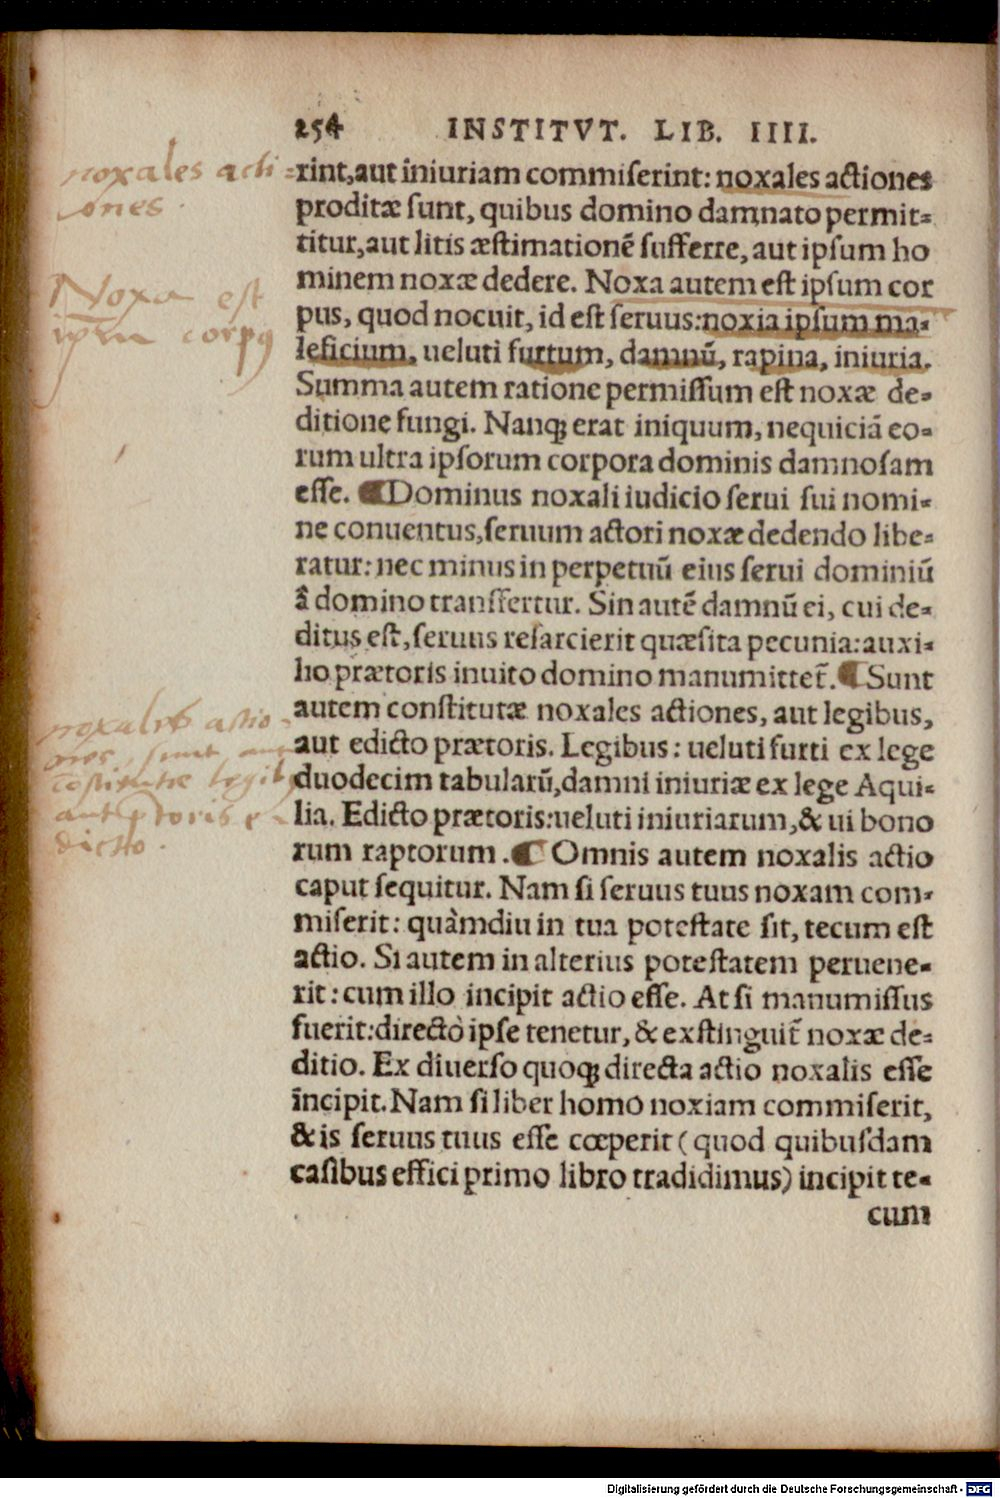 254 INSTITVT. LIB. IIII.
noxales acti-
ones.
rint,aut iniuriam commiserint: noxales actiones
proditæ sunt, quibus domino damnato permit-
titur,aut litis æstimationē sufferre, aut ipsum ho
minem noxæ dedere. Noxa autem est ipsum cor
Noxa est
ipsm corpꝰ
pus, quod nocuit, id est seruus:noxia ipsum ma-
leficium, ueluti furtum, damnū, rapina, iniuria.
Summa autem ratione permissum est noxæ de-
ditione fungi. Nanqꝫ erat iniquum, nequiciā eo-
rum ultra ipsorum corpora dominis damnosam
esse. ¶Dominus noxali iudicio serui sui nomi-
ne conuentus,seruum actori noxæ dedendo libe-
ratur: nec minus in perpetuū eius serui dominiū
à domino transfertur. Sin autē damnū ei, cui de-
ditus est, seruus resarcierit quæsita pecunia: auxi-
lio prætoris inuito domino manumittet̃. ¶Sunt
autem constitutæ noxales actiones, aut legibus,
noxales actio-
nes, sunt aut
cōstitutæ legibꝰ
aut p̄toris e-
dicto.
aut edicto prætoris. Legibus: ueluti furti ex lege
duodecim tabularū,damni iniuriæ ex lege Aqui-
lia. Edicto prætoris:ueluti iniuriarum,& ui bono
rum raptorum. ¶ Omnis autem noxalis actio
caput sequitur. Nam si seruus tuus noxam com-
miserit: quàmdiu in tua potestate sit, tecum est
actio. Si autem in alterius potestatem peruene-
rit: cum illo incipit actio esse. At si manumissus
fuerit:directò ipse tenetur, & exstinguit̃ noxæ de-
ditio. Ex diuerso quoqꝫ directa actio noxalis esse
incipit. Nam si liber homo noxiam commiserit,
& is seruus tuus esse cœperit (quod quibusdam
casibus effici primo libro tradidimus) incipit te-
cum
Digitalisierung gefördert durch die Deutsche Forschungsgemeinschaft - DFG